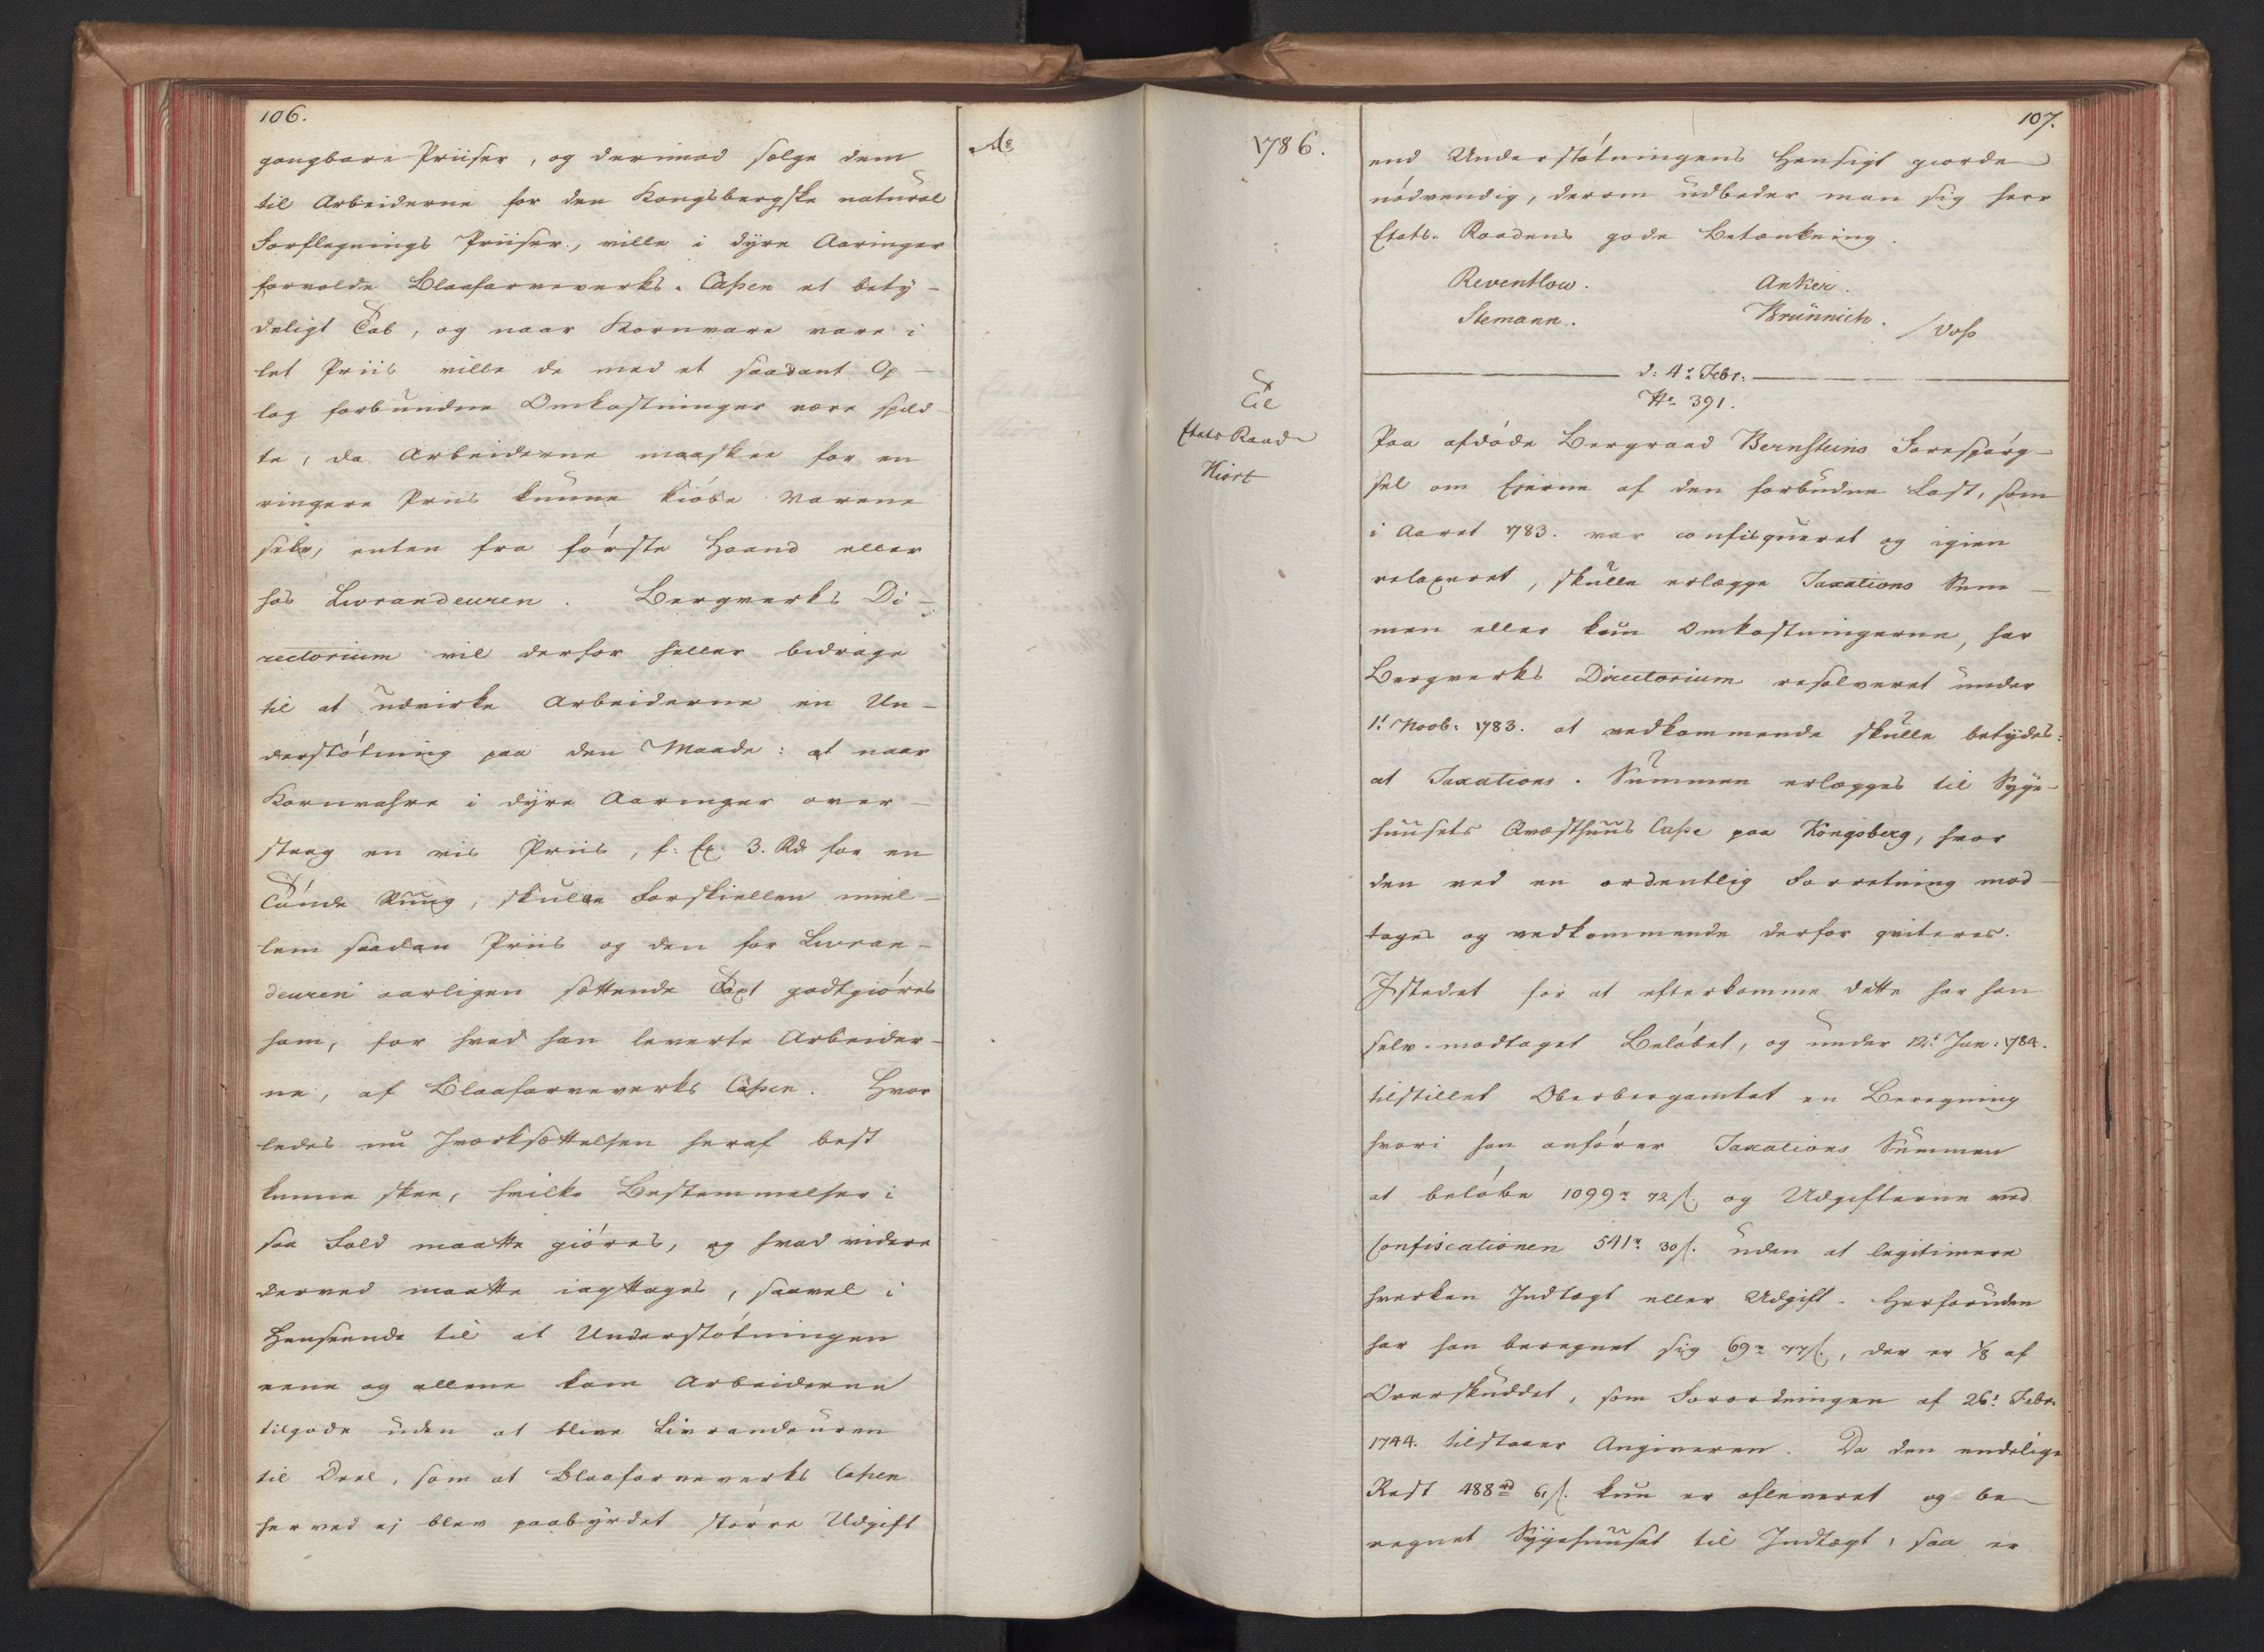 106.
gangbare Priiser, og derimod sælge dem
til Arbeiderne for den Kongsbergske natural
Forflegnings Priiser, ville i dyre Aaringer
forvolde Blaafarveverks-Casßen et bety-
deligt Tab, og naar Kornvare vare i
let Priis ville de med et saadant Op-
lag forbundne Omkostninger være spild-
te, da Arbeiderne maaskee for en
ringere Priis kunne kiöbe Varene
selv, enten fra förste Haand eller
hos Livrandeuren. Bergverks Di-
rectorium vil derfor heller bidrage
til at udvirke Arbeiderne en Un-
derstötning paa den Maade: at naar
Kornvahre i dyre Aaringer over-
steeg en vis Priis, f: Ex: 3. Rd for en
Tönde Ruug, skulle Forskiellen miel-
lem saadan Priis og den for Livran-
deuren aarligen sættende Taxt godtgiöres
ham, for hvad han leverte Arbeider-
ne, af Blaafarveverks Caßen. Hvor
ledes nu Iværksættelsen heraf best
kunne skee, hvilke Bestemmelser i
saa Fald maatte giöres, og hvad videre
derved maatte iagttages, saavel i
Henseende til at Understötningen
eene og allene kom Arbeiderne
tilgode uden at blive Livrandeuren
til Deel, som at Blaafarveverks Caßen
herved ej blev paabyrdet större Udgift
Ao
1786.
107.
end Understötningens Hensigt giorde
nödvendig, derom udbeder man sig Herr
Etats-Raadens gode Betænkning.
Reventlow. Anker.
Stemann. Brünnich. / Voß
d: 4de Febr:
No 391.
Til
Etats Raad
Hiort
Paa afdöde Bergraad Bernsteins Forespörg-
sel om Eierne af den forbudne Last, som
i Aaret 1783. var confisqueret og igien
relaxeret, skulle erlægge Taxations Sum-
men eller kun Omkostningerne, har
Bergverks Directorium resolveret under
1t Novb: 1783. at vedkommende skulle betydes:
at Taxations-Summen erlægges til Syge-
huusets Qvæsthuus Caße paa Kongsberg, hvor
den ved en ordentlig Forretning mod-
tages og vedkommende derfor qviteres.
Istedet for at efterkomme dette har han
selv modtaget Belöbet, og under 12t Jan: 1784.
tilstillet Oberbergamtet en Beregning
hvori han anförer Taxations Summen
at belöbe 1099r 72 ſ. og Udgifterne ved
Confiscationen 541r 30 ſ. uden at legitimere
hverken Indtægt eller Udgift. Herforuden
har han beregnet sig 69r 77 ſ., der er 1/8 af
Overskuddet, som Forordningen af 26t Febr.
1744. tilstaaer Angiveren. Da den endelige
Rest 488rd 61 ſ. kun er afleveret og be-
regnet Sygehuuset til Indtægt, saa er